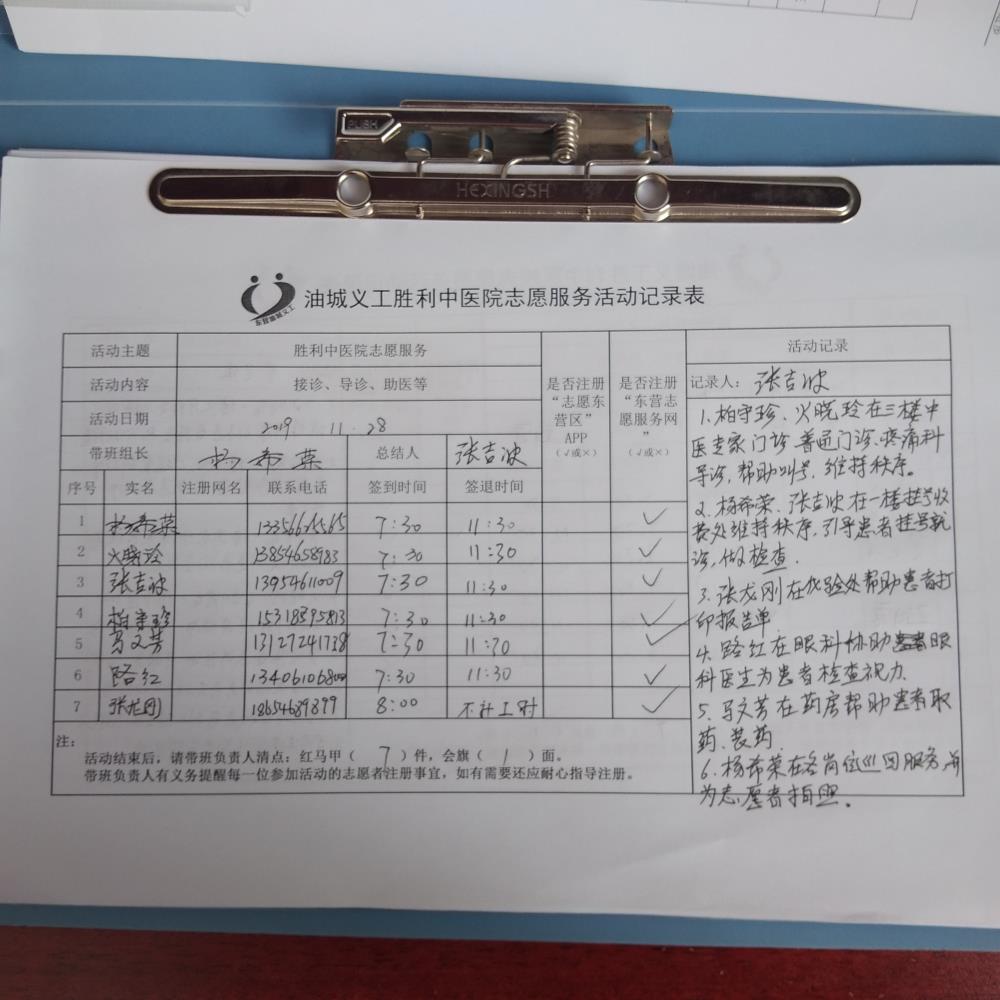 PUSH
HEXINGSH
东营油城义工
油城义工胜利中医院志愿服务活动记录表
活动主题 胜利中医院志愿服务
活动内容 接诊、导诊、助医等
活动日期 2019 . 11 . 28
带班组长 杨希荣 总结人 张吉波
是否注册“志愿东营区”APP（√或×）
是否注册“东营志愿服务网”（√或×）
序号 实名 注册网名 联系电话 签到时间 签退时间
1 杨希荣 7:30 11:30 ✓
2 火晓玲 13854658983 7:30 11:30 ✓
3 张吉波 13954611009 7:30 11:30 ✓
4 柏守珍 15318395813 7:30 11:30 ✓
5 马文芳 13127241738 7:30 11:30 ✓
6 路红 7:30 11:30 ✓
7 张龙刚 18654689899 8:00 不计工时 ✓
注：
活动结束后，请带班负责人清点：红马甲（ 7 ）件，会旗（ 1 ）面。
带班负责人有义务提醒每一位参加活动的志愿者注册事宜，如有需要还应耐心指导注册。
活动记录
记录人：张吉波
1、柏守珍、火晓玲在三楼中
医专家门诊 普通门诊、疼痛科
导诊，帮助叫号，维持秩序。
2、杨希荣、张吉波在一楼挂号收
费处维持秩序，引导患者挂号就
诊，做检查.
3、张龙刚在化验处帮助患者打
印报告单
4、路红在眼科协助眼
科医生为患者检查视力.
5、马文芳在药房帮助患者取
药、装药.
6、杨希荣在各岗位巡回服务，并
为志愿者拍照.